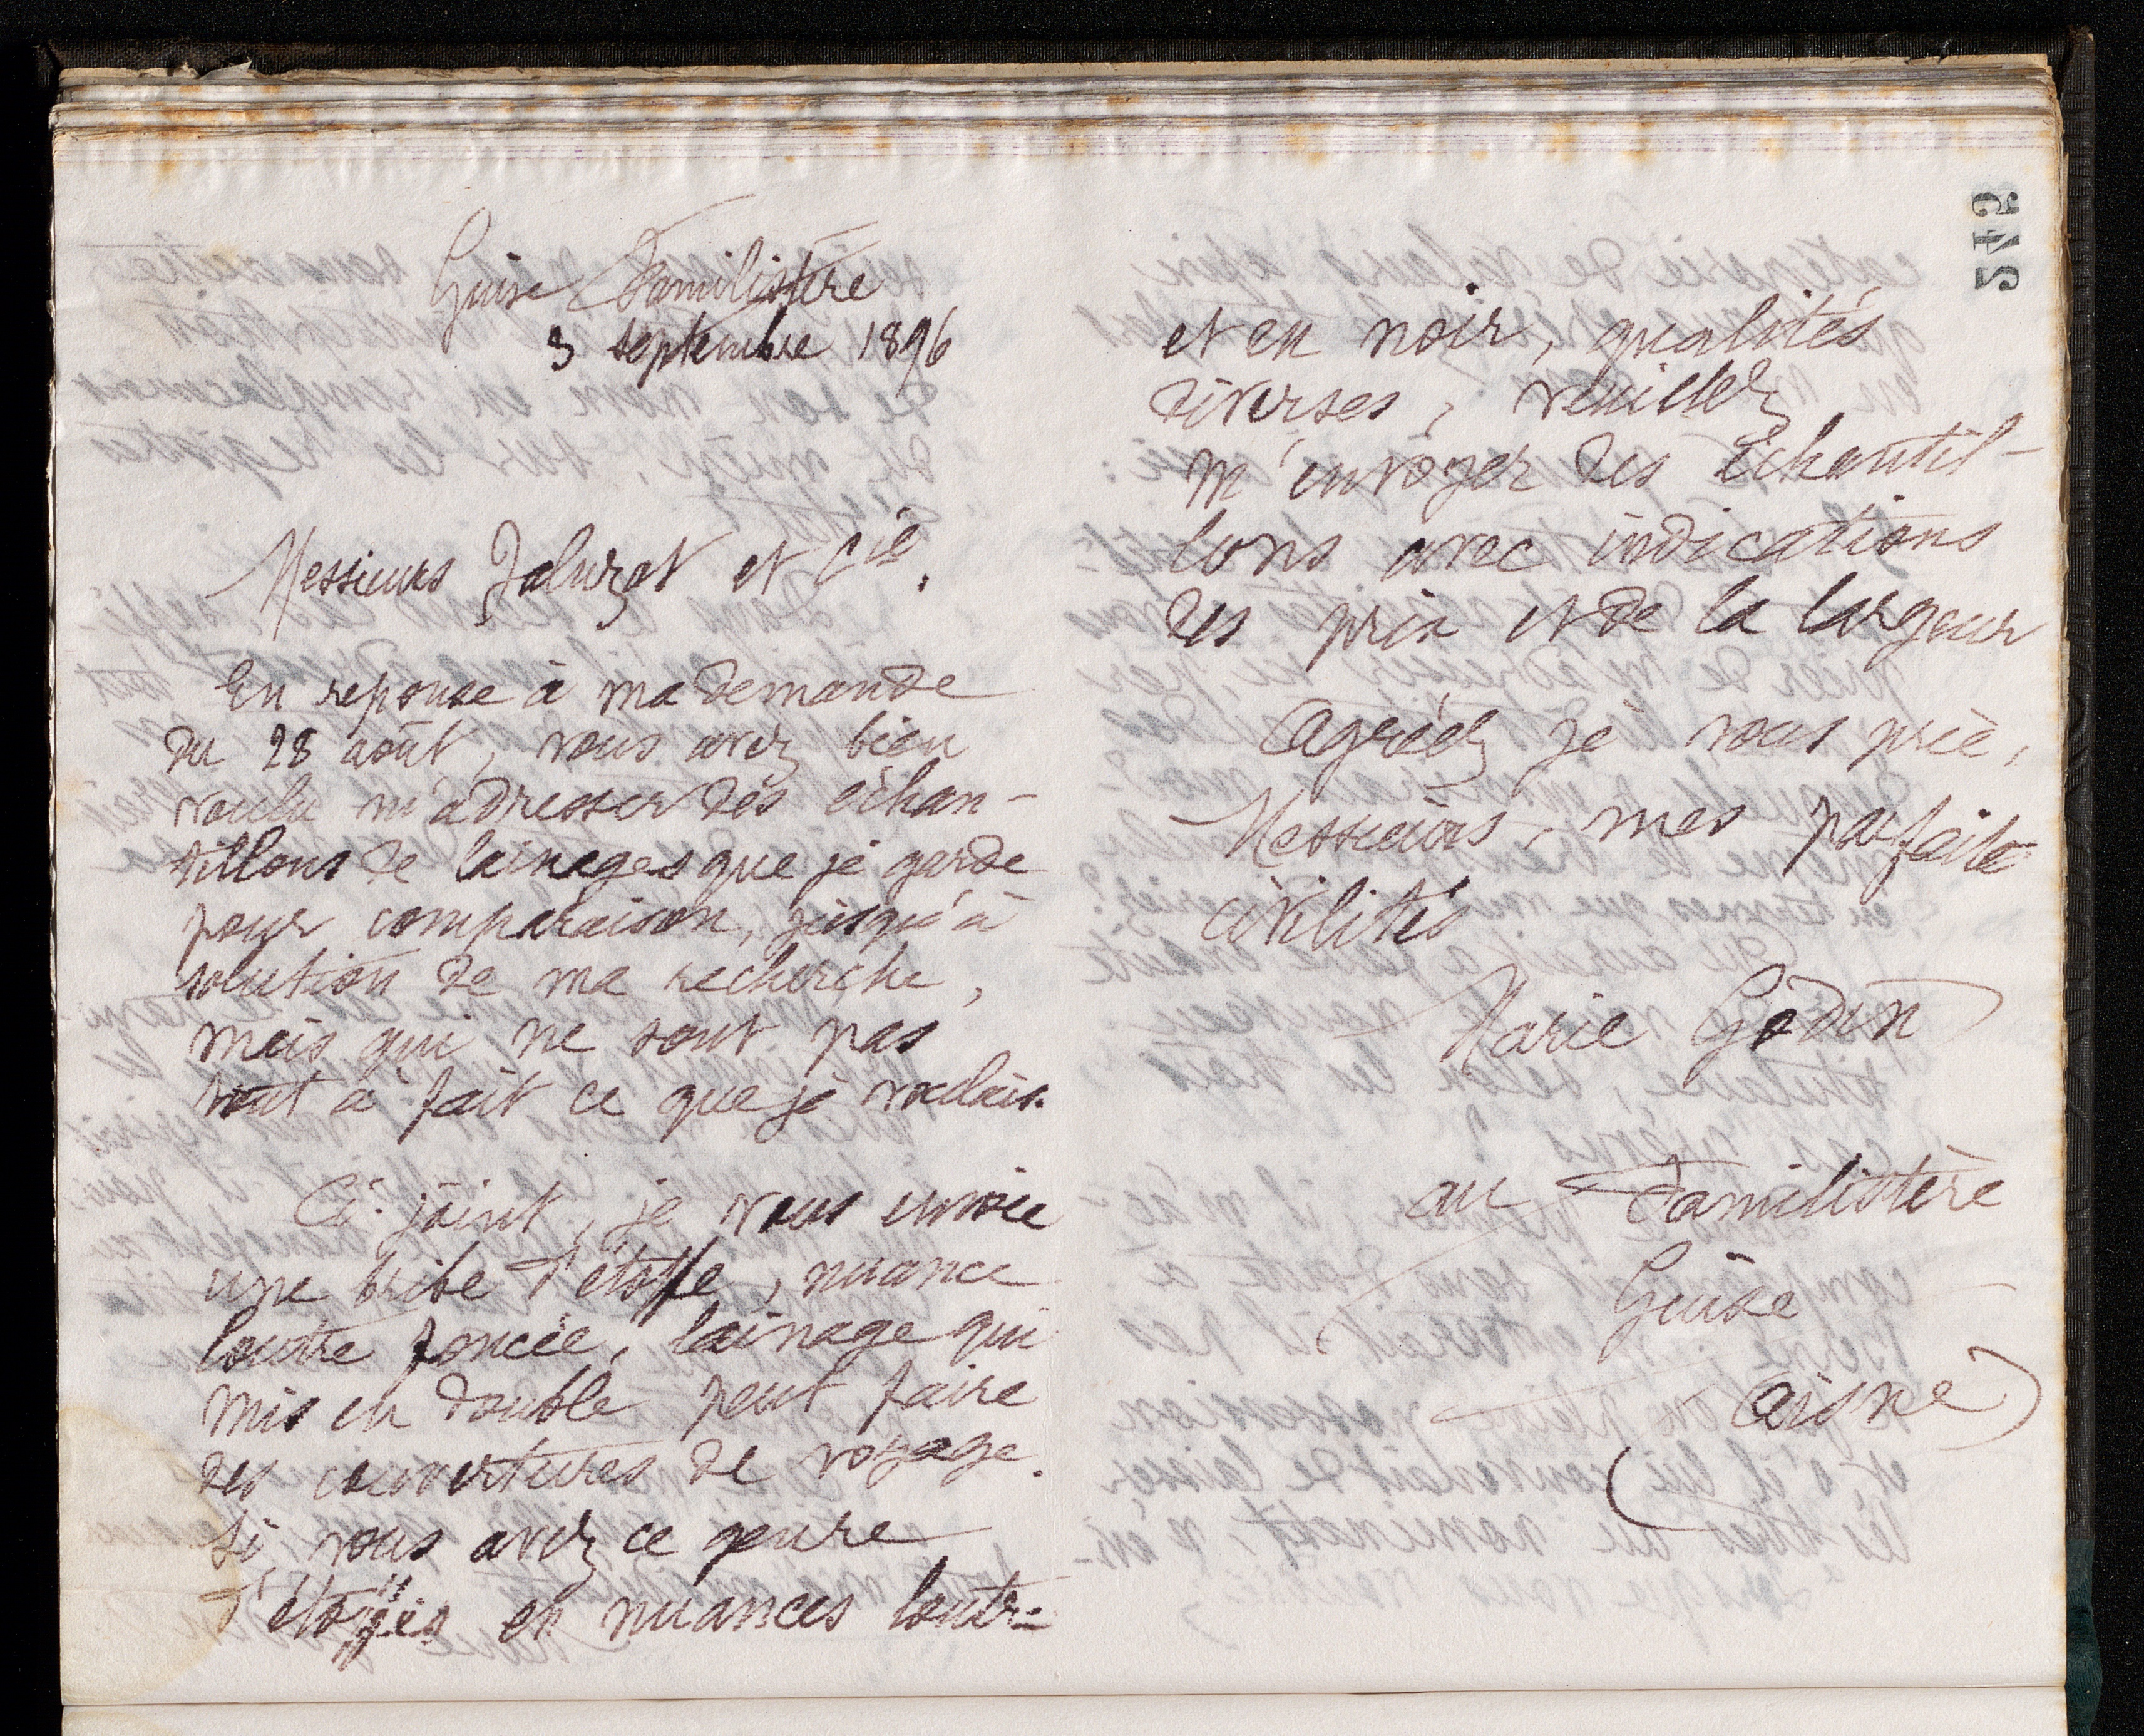 Guise Familistère
3 septembre 1896
Messieurs Jaluzot et Cie.
En reponse à ma demande
du 28 août, vous avez bien
voulu m'adresser des échan-
tillons de lainages que je garde
pour comparaison, jusqu'à
solution de ma recherche,
mais qui ne sont pas
tout à fait ce que je voulais.
Ci-joint, je vous envoie
une bribe d'étoffe, nuance
loutre foncée, lainage qui
mis en double peut faire
des couvertures de voyage.
Si vous avez ce genre
d'étoffes en nuances loutre
et en noir, qualités
diverses, veuillez
m'envoyer des échantil-
lons avec indications
des prix et de la largeur
Agréez je vous prie,
Messieurs, mes parfaites
civilités
Marie Godin
au Familistère
Guise
(Aisne)
542